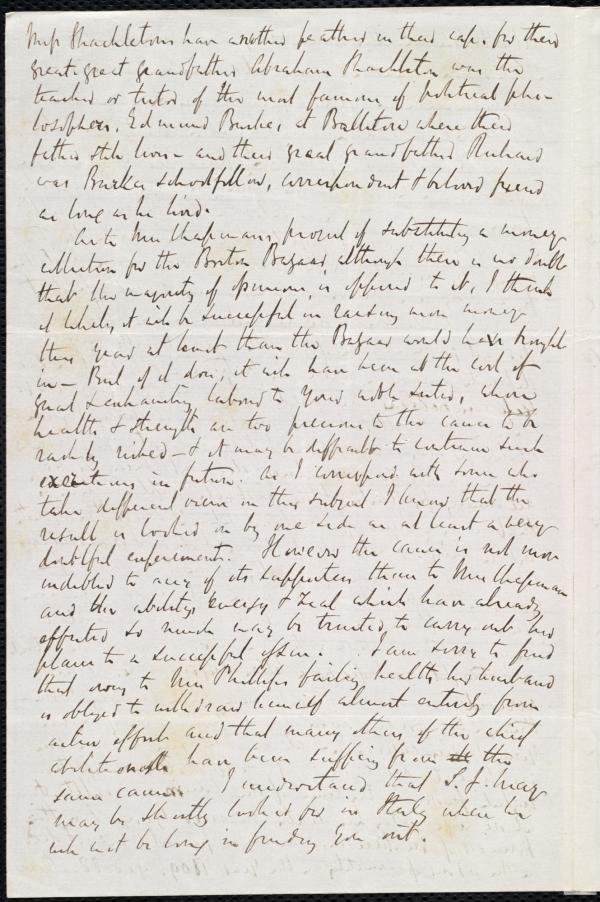 Miss Shackletons have another feather in their cap. for their
great-great grandfather Abraham Shackleton was the
teacher or tutor of the most famous of political phi-
losophers, Edmund Burke, at Ballitore where their
father still lives - and their great grandfather Richard
was Burke's schoolfellow, correspondent & beloved friend
as long as he lived.
As to Mrs Chapman's project of substituting a money
collection for the Boston Bazaar, although there is no doubt
that the majority of opinions is opposed to it, I think
it likely it will be successful in raising more money
this year at least than the Bazaar would have brought
in - But if it does, it will have been at the cost of
great & exhausting labour to your noble sister, whose
health & strength are too precious to the cause to be
rashly risked - & it may be difficult to continue such
exertions in future. As I correspond with some who
take different views on this subject I know that the
result is looked on by one side as at least a very
doubtful experiment. However the cause is not more
indebted to any of its supporters than to Mrs Chapman
and the ability, energy & zeal which have already
effected so much may be trusted to carry out her
plans to a successful issue. I am sorry to find
that owing to Mrs Phillips failing health her husband
is obliged to withdraw himself almost entirely from
active efforts and that many others of the chief
abolitionists have been suffering from the
same cause. I understand that S. J. May
may be shortly looked for in Italy where he
will not be long in finding you out.